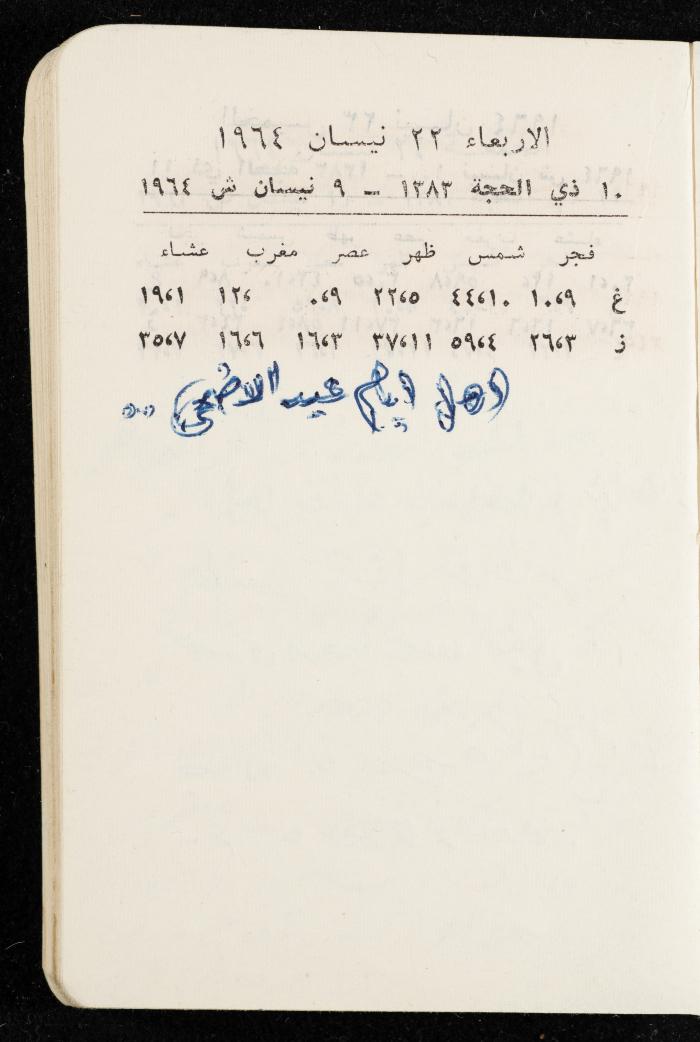 الاربعاء ٢٢ نيسان ١٩٦٤
١٠ ذي الحجة ١٣٨٣ – ٩ نيسان ش ١٩٦٤
فجر شمس ظهر عصر مغرب عشاء
غ ٩،١٠ ١٠،٤٤ ٥،٢٢ ٩،٠ ،١٢ ١،١٩
ز ٣،٢٦ ٤،٥٩ ١١،٣٧ ٣،١٦ ٦،١٦ ٧،٣٥
اول ايام عيد الاضحى ..